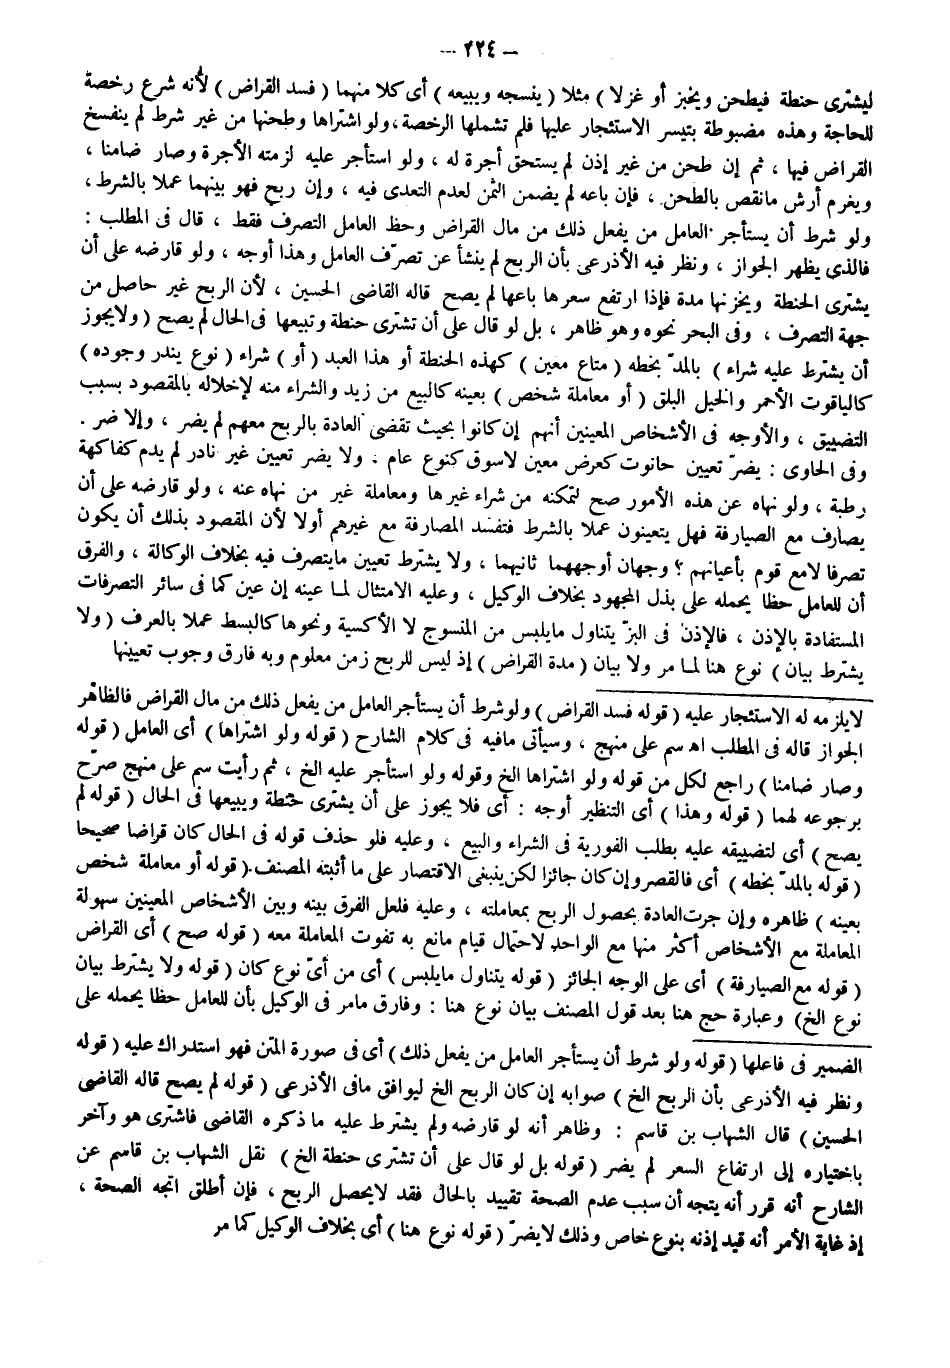 — ٢٢٤ —
ليشترى حنطة فيطحن ويخبز أو غزلا ) مثلا ( ينسجه ويبيعه ) أى كلا منهما ( فسد القراض ) لأنه شرع رخصة
للحاجة وهذه مضبوطة بتيسر الاستئجار عليها فلم تشملها الرخصة، ولو اشتراها وطحنها من غير شرط لم ينفسخ
القراض فيها ، ثم إن طحن من غير إذن لم يستحق أجرة له ، ولو استأجر عليه لزمته الأجرة وصار ضامنا ،
ويغرم أرش مانقص بالطحن ، فإن باعه لم يضمن الثمن لعدم التعدى فيه ، وإن ربح فهو بينهما عملا بالشرط ،
ولو شرط أن يستأجر العامل من يفعل ذلك من مال القراض وحظ العامل التصرف فقط ، قال فى المطلب :
فالذى يظهر الجواز ، ونظر فيه الأذرعى بأن الربح لم ينشأ عن تصرّف العامل وهذا أوجه ، ولو قارضه على أن
يشترى الحنطة ويخزنها مدة فإذا ارتفع سعرها باعها لم يصح قاله القاضى الحسين ، لأن الربح غير حاصل من
جهة التصرف ، وفى البحر نحوه وهو ظاهر ، بل لو قال على أن تشترى حنطة وتبيعها فى الحال لم يصح ( ولايجوز
أن يشترط عليه شراء ) بالمدّ بخطه ( متاع معين ) كهذه الحنطة أو هذا العبد ( أو ) شراء ( نوع يندر وجوده )
كالياقوت الأحمر والخيل البلق ( أو معاملة شخص ) بعينه كالبيع من زيد والشراء منه لإخلاله بالمقصود بسبب
التضييق ، والأوجه فى الأشخاص المعينين أنهم إن كانوا بحيث تقضى العادة بالربح معهم لم يضر ، وإلا ضر .
وفى الحاوى : يضرّ تعيين حانوت كعرض معين لاسوق كنوع عام . ولا يضر تعيين غير نادر لم يدم كفاكهة
رطبة ، ولو نهاه عن هذه الأمور صح لتمكنه من شراء غيرها ومعاملة غير من نهاه عنه ، ولو قارضه على أن
يصارف مع الصيارفة فهل يتعينون عملا بالشرط فتفسد المصارفة مع غيرهم أولا لأن المقصود بذلك أن يكون
تصرفا لامع قوم بأعيانهم ؟ وجهان أوجههما ثانيهما ، ولا يشترط تعيين مايتصرف فيه بخلاف الوكالة ، والفرق
أن للعامل حظا يحمله على بذل المجهود بخلاف الوكيل ، وعليه الامتثال لما عينه إن عين كما فى سائر التصرفات
المستفادة بالإذن ، فالإذن فى البزّ يتناول مايلبس من المنسوج لا الأكسية ونحوها كالبسط عملا بالعرف ( ولا
يشترط بيان ) نوع هنا لما مر ولا بيان ( مدة القراض ) إذ ليس للربح زمن معلوم وبه فارق وجوب تعيينها
لايلزمه له الاستئجار عليه ( قوله فسد القراض ) ولو شرط أن يستأجر العامل من يفعل ذلك من مال القراض فالظاهر
الجواز قاله فى المطلب اه سم على منهج ، وسيأتى مافيه فى كلام الشارح ( قوله ولو اشتراها ) أى العامل ( قوله
وصار ضامنا ) راجع لكل من قوله ولو اشتراها الخ وقوله ولو استأجر عليه الخ ، ثم رأيت سم على منهج صرّح
برجوعه لهما ( قوله وهذا ) أى التنظير أوجه : أى فلا يجوز على أن يشترى حنطة ويبيعها فى الحال ( قوله لم
يصح ) أى لتضييقه عليه بطلب الفورية فى الشراء والبيع ، وعليه فلو حذف قوله فى الحال كان قراضا صحيحا
( قوله بالمدّ بخطه ) أى فالقصر وإن كان جائزا لكن ينبغى الاقتصار على ما أثبته المصنف ( قوله أو معاملة شخص
بعينه ) ظاهره وإن جرت العادة بحصول الربح بمعاملته ، وعليه فلعل الفرق بينه وبين الأشخاص المعينين سهولة
المعاملة مع الأشخاص أكثر منها مع الواحد لاحتمال قيام مانع به تفوت المعاملة معه ( قوله صح ) أى القراض
( قوله مع الصيارفة ) أى على الوجه الجائز ( قوله يتناول مايلبس ) أى من أىّ نوع كان ( قوله ولا يشترط بيان
نوع الخ) وعبارة حج هنا بعد قول المصنف بيان نوع هنا : وفارق مامر فى الوكيل بأن للعامل حظا يحمله على
الضمير فى فاعلها ( قوله ولو شرط أن يستأجر العامل من يفعل ذلك ) أى فى صورة المتن فهو استدراك عليه ( قوله
ونظر فيه الأذرعى بأن الربح الخ ) صوابه إن كان الربح الخ ليوافق مافى الأذرعى ( قوله لم يصح قاله القاضى
الحسين ) قال الشهاب بن قاسم : وظاهر أنه لو قارضه ولم يشترط عليه ما ذكره القاضى فاشترى هو وآخر
باختياره إلى ارتفاع السعر لم يضر ( قوله بل لو قال على أن تشترى حنطة الخ ) نقل الشهاب بن قاسم عن
الشارح أنه قرر أنه يتجه أن سبب عدم الصحة تقييد بالحال فقد لايحصل الربح ، فإن أطلق اتجه الصحة ،
إذ غاية الأمر أنه قيد إذنه بنوع خاص وذلك لايضرّ ( قوله نوع هنا ) أى بخلاف الوكيل كما مر